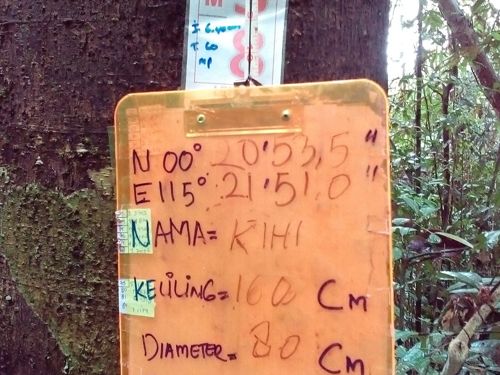 N 00° 20'53,5"
E 115° 21'51,0"
NAMA= KIHI
KELILING= 160 Cm
DIAMETER= 80 Cm